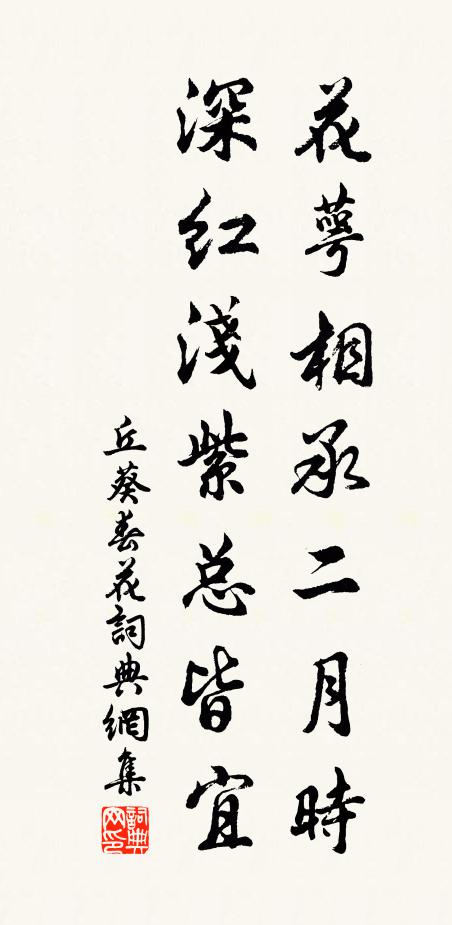 花萼相承二月時
深紅淺紫总皆宜
丘葵春花詞典網集
詞典網印